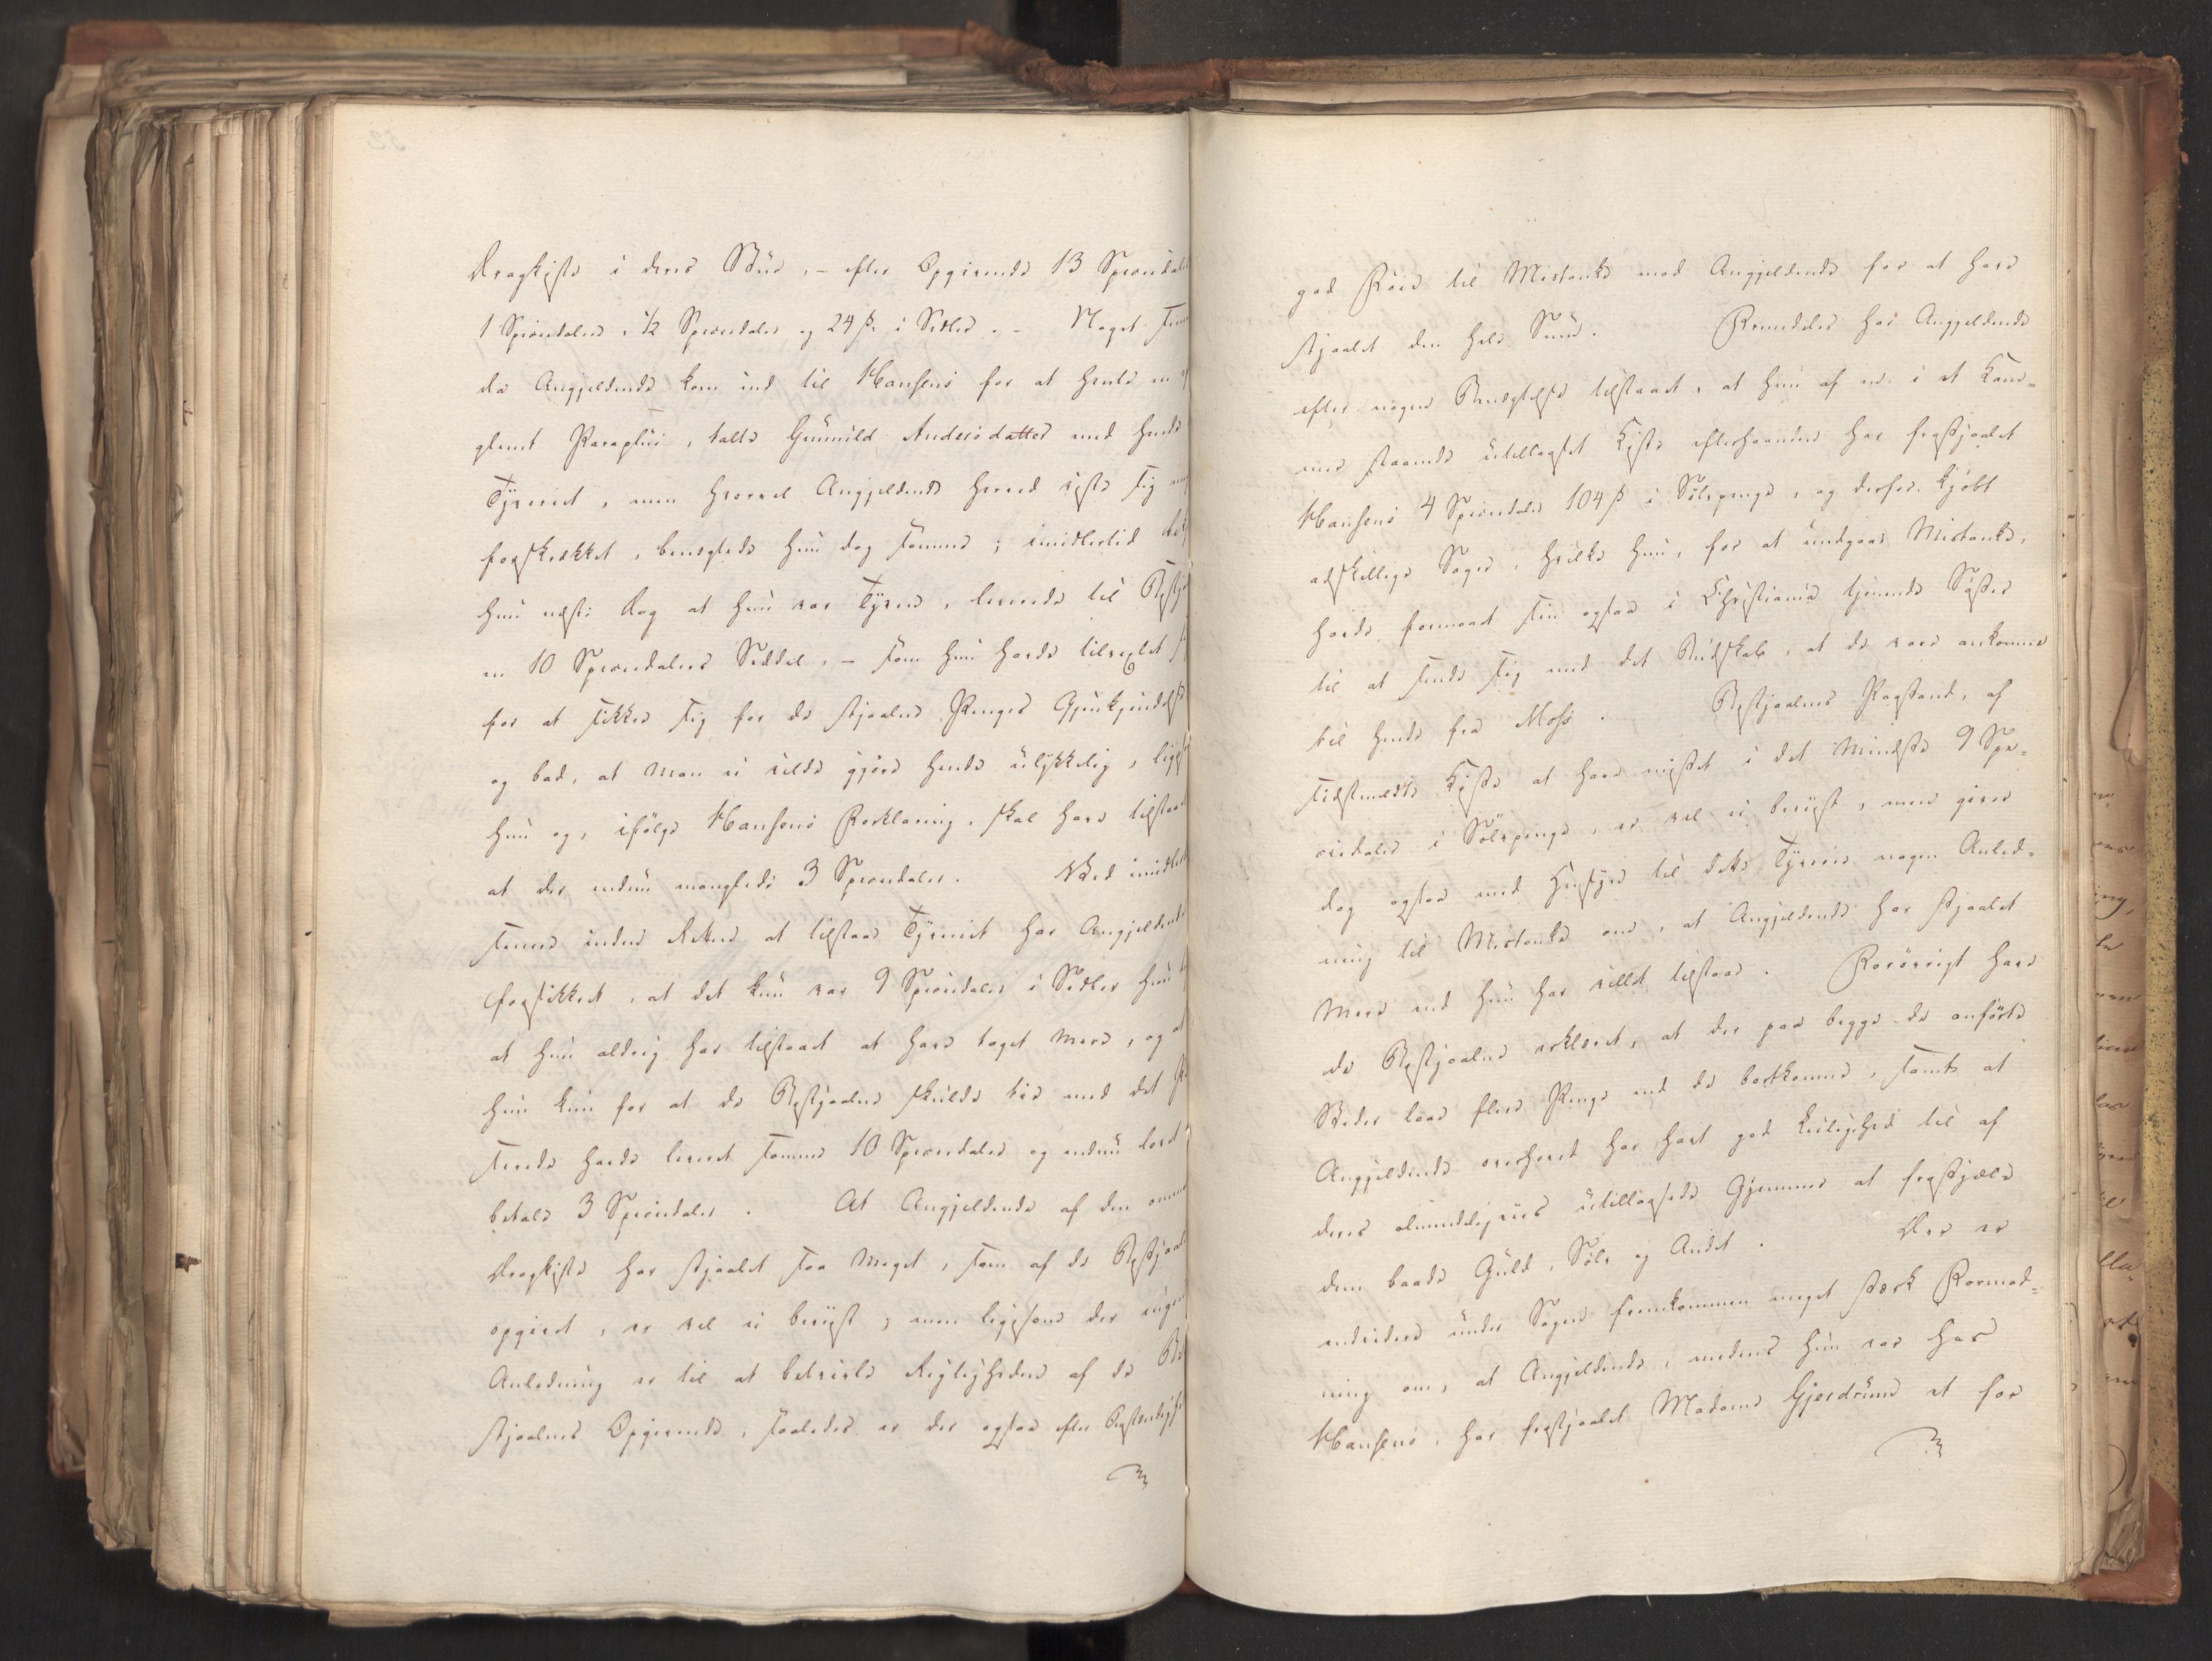 Dragkiste i deres Bue, – efter Opgivende 13 Speciedaler
1 Speciedaler, ½ Speciedaler og 24 ß. i Sedler. – Noget
da Angjeldende kom ind til Hansens for at hente en
glemt Paraplui, talte Gunnild Andersdatter med hende
Tyveriet, men hvorvel Angjeldende herved viste sig
forskrækket, benegtede hun dog samme; imidlertid
hun næste Dag at hun var Tyven, leverede til
en 10 Speciedalers Seddel, – som hun havde tilvexlet
for at sikkre sig for de stjaalne Penges Gjenkjendelse
og bad, at man ei vilde gjøre hende ulykkelig,
hun og, ifølge Hansens Forklaring, skal have tilstaaet
at der endnu manglede 3 Speciedaler. Ved
senere inden Retten at tilstaae Tyveriet har Angjeldende
forsikkret, at det kun var 9 Speciedaler i Sedler hun
at hun aldrig har tilstaaet at have taget mere, og at
hun kun for at de Bestjaalne skulde tie med det
skeede havde leveret samme 10 Speciedaler og endnu lovet
betale 3 Speciedaler. At Angjeldende af den
Dragkiste har stjaalet saa meget, som af de Bestjaalne
opgivet, er vel ei beviist, men ligesom der ingen
Anledning er til at betvivle Rigtigheden af de Be
stjaalnes Opgivende, saaledes er der ogsaa efter
god Føie til Mistanke mod Angjeldende for at have
stjaalet den hele Sum. Fremdeles har Angjeldende
efter nogen Benegtelse tilstaaet, at hun af en i et Kam=
mer staaende utillaaset Kiste efterhaanden har frastjaalet
Hansens 4 Speciedaler 104 ß i Sølvpenge, og derfor kjøbt
adskillige Sager, hvilke hun, for at undgaae Mistanke,
havde formaaet sin ogsaa i Christiania tjenende Søster
til at sende sig med det Budskab, at de vare ankomne
til hende fra Moss. Bestjaalnes Paastand, af
sidstmeldte Kiste at have mistet i det mindste 9 Spe=
ciedaler i Sølvpenge, er vel ei beviist, men giver
dog ogsaa med Hensyn til dette Tyverie nogen Anled=
ning til Mistanke om, at Angjeldende har stjaalet
mere end hun har villet tilstaae. Forøvrigt have
de Bestjaalne erklæret, at der paa begge de anførte
Steder laae flere Penge end de bortkomne, samt at
Angjeldende overhoved har havt god Leilighed til af
deres almindeligviis utillaasede Gjemmer at frastjæle
dem baade Guld, Sølv og Andet. Der er
endvidere under Sagen fremkommen meget stærk Formod=
ning om, at Angjeldende, medens hun var hos
Hansens, har frastjaalet Madame Gjerdrum et for